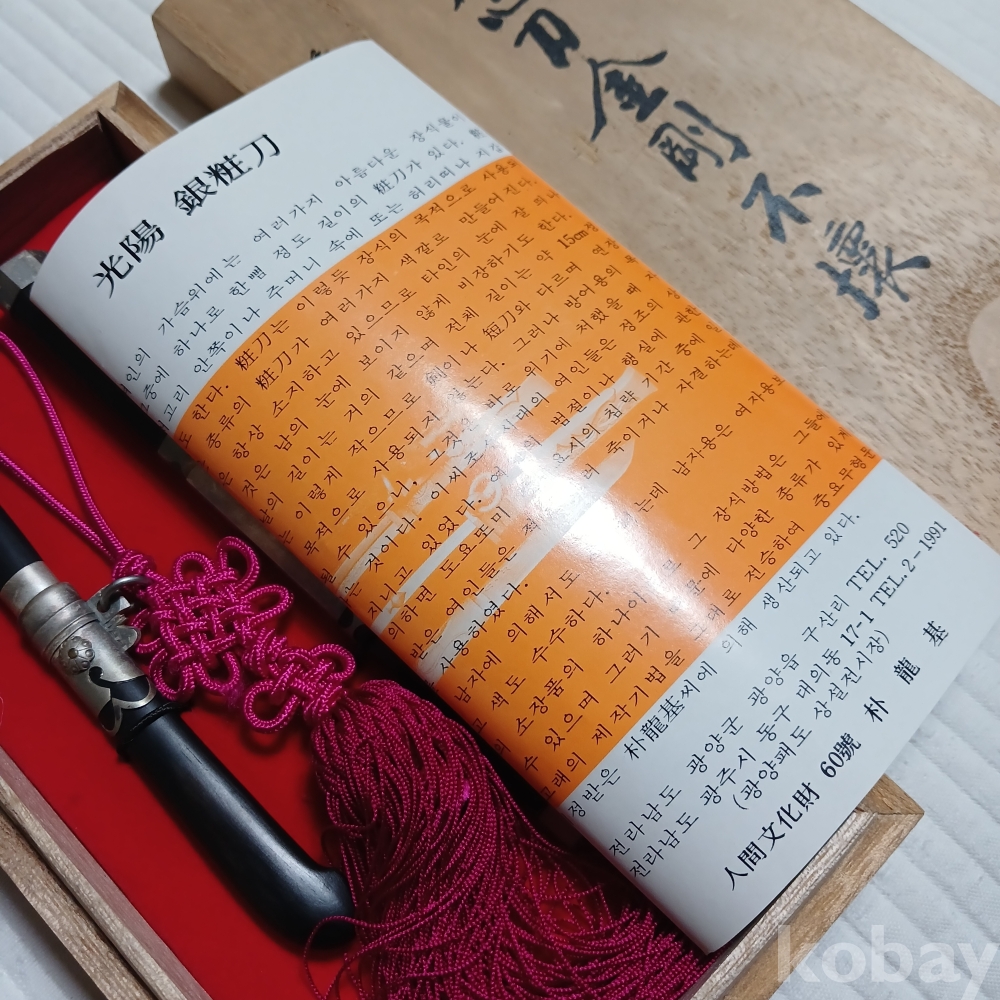 金剛不壞
光陽 銀粧刀
여러가지 아름다운 장식물이
가슴위에는 한뼘 정도 길이의 粧刀가 있다.
중에 하나로 주머니 속에 또는 허리띠나 저고
고리 안쪽이나
한다. 粧刀는 이렇듯 장식의 목적으로 사용되
종류의 粧刀가 여러가지 색깔로 만들어진다.
항상 소지하고 있으므로 타인의 눈에 잘 띄
것은 남의 눈에 보이지 않게 비장하기도 한다.
날의 길이는 거의 같으며 전체 길이는 약 15㎝정
이렇게 작으므로 劍이나 短刀와 다르며 연장
목적으로 사용되지 않는다. 그러나 방어용의 목
수 있으니. 그것은 위기에 처했을 때
것이다. 이씨조 시대의 여인들은 정조의 상
지니고 있었다. 여 범절이나 행실에 관한
하면 도요또미 침략 기간 중에 일
받은 여인들은 죽이거나 자결하는데
사용하였다.
남자에 의해서도 는데 남자용은 여자용보
색도 수수하다.
소장품의 하나이 로 그 장식방법은 그들이
수 있으며 그러기 모에 다양한 종류가 있지
고래의 제작기법을 그대로 전승하여 중요무형문
정받은 朴龍基씨에 의해 생산되고 있다.
전라남도 광양군 광양읍 구산리 TEL. 520
전라남도 광주시 동구 대의동 17-1 TEL. 2-1991
(광양패도 상설전시장)
人間文化財 60號 朴龍基
kobay